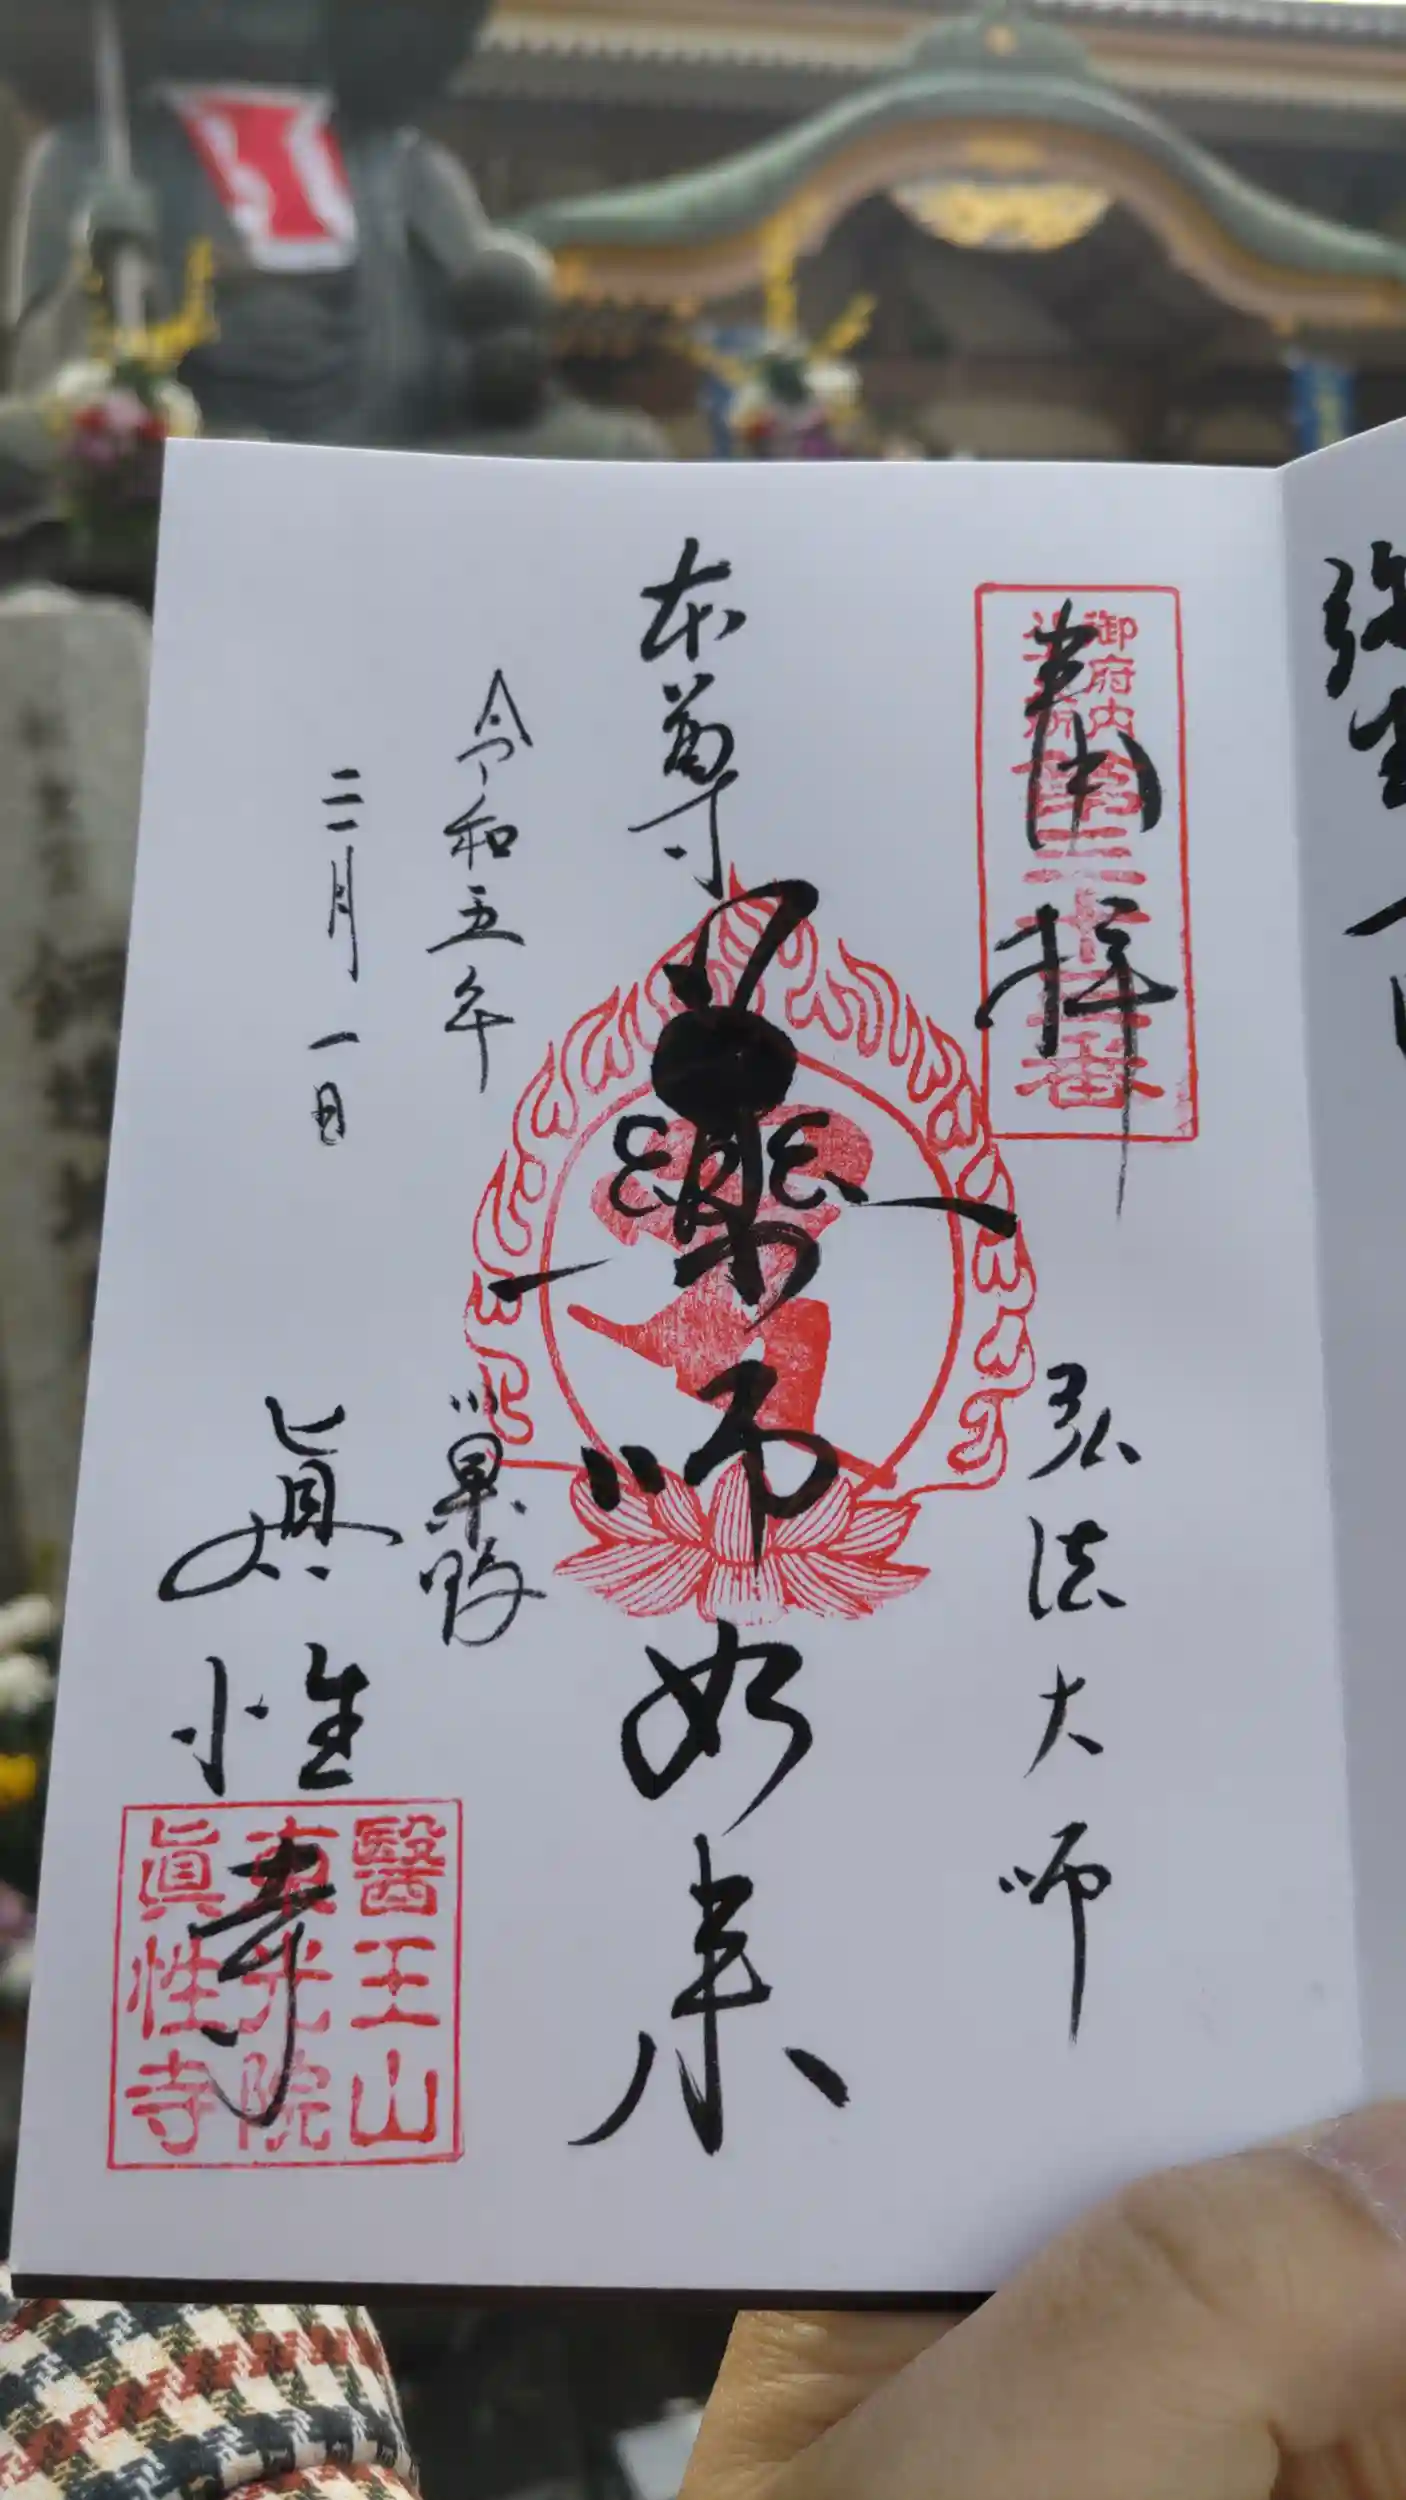 御府内
第三十三番
奉拝
弘法大師
本尊
薬師如来
令和五年
三月一日
巣鴨
眞性寺
醫王山
東光院
眞性寺